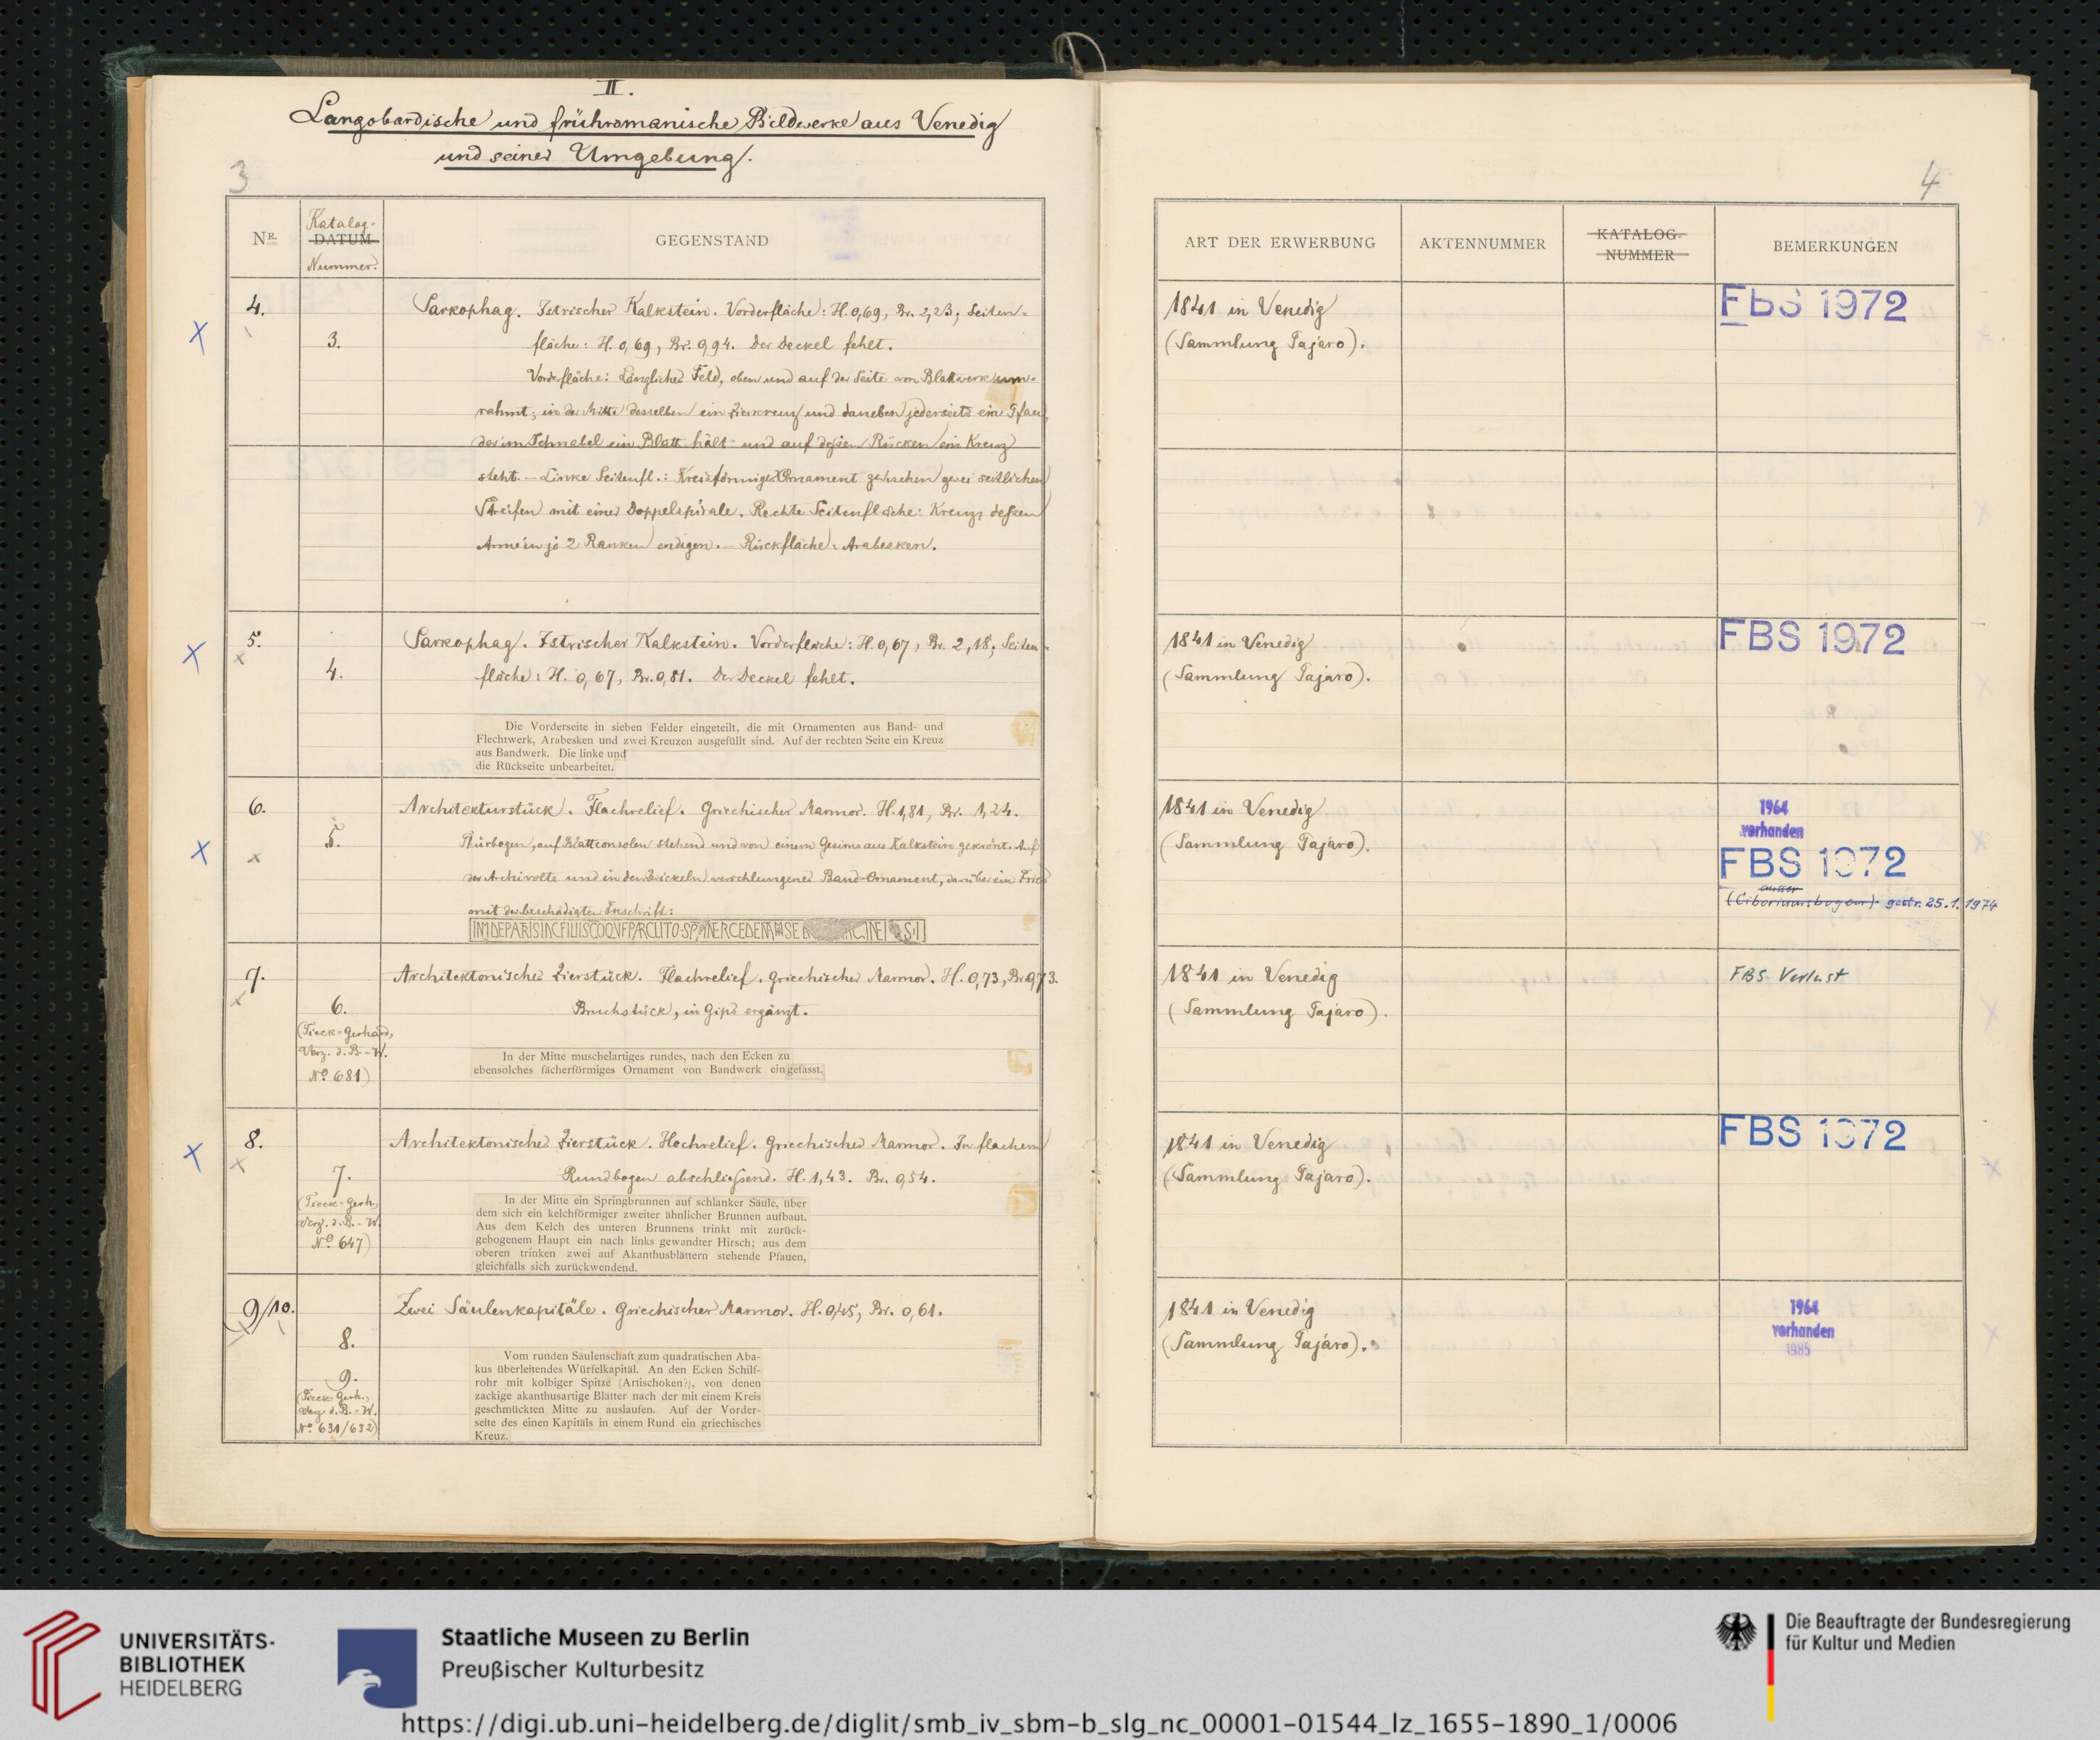 II.
Langobardische und frühromanische Bildwerke aus Venedig
und seiner Umgebung.
3
NR.
Katalog-
DATUM
Nummer.
GEGENSTAND
4.
3.
Sarkophag. Istrischer Kalkstein. Vorderfläche: H. 0,69, Br. 2,23; Seiten-
fläche: H. 0,69, Br. 0,94. Der Deckel fehlt.
Vorderfläche: Längliches Feld, oben und auf der Seite von Blattwerk um-
rahmt; in der Mitte desselben ein Zierkreuz und daneben jederseits ein Pfau,
der im Schnabel ein Blatt hält und auf dessen Rücken ein Kreuz
steht. – Linke Seitenfl.: Kreisförmiges Ornament zwischen zwei seitlichen
Streifen mit einer Doppelspirale. Rechte Seitenfläche: Kreuz, dessen
Arme in je 2 Ranken endigen. – Rückfläche: Arabesken.
5.
4.
Sarkophag. Istrischer Kalkstein. Vorderfläche: H. 0,67, Br. 2,18; Seiten-
fläche: H. 0,67, Br. 0,81. Der Deckel fehlt.
Die Vorderseite in sieben Felder eingeteilt, die mit Ornamenten aus Band- und
Flechtwerk, Arabesken und zwei Kreuzen ausgefüllt sind. Auf der rechten Seite ein Kreuz
aus Bandwerk. Die linke und
die Rückseite unbearbeitet.
6.
5.
Architekturstück. Flachrelief. Griechischer Marmor. H. 1,81, Br. 1,24.
Thürbogen, auf Blattconsolen stehend und von einem Gesims aus Kalkstein gekrönt. Auf
der Archivolte und in den Zwickeln verschlungenes Band-Ornament, darüber ein Fries
mit der beschädigten Inschrift:
7.
6.
(Tieck-Gerhard,
Verz. d. B.-W.
No. 681)
Architektonisches Zierstück. Flachrelief. Griechischer Marmor. H. 0,73, Br. 0,73.
Bruchstück, in Gips ergänzt.
In der Mitte muschelartiges rundes, nach den Ecken zu
ebensolches fächerförmiges Ornament von Bandwerk eingefasst.
8.
7.
(Tieck-Gerh.,
Verz. d. B.-W.
No. 647)
Architektonisches Zierstück. Hochrelief. Griechischer Marmor. In flachem
Rundbogen abschließend. H. 1,43. Br. 0,54.
In der Mitte ein Springbrunnen auf schlanker Säule, über
dem sich ein kelchförmiger zweiter ähnlicher Brunnen aufbaut.
Aus dem Kelch des unteren Brunnens trinkt mit zurück-
gebogenem Haupt ein nach links gewandter Hirsch; aus dem
oberen trinken zwei auf Akanthusblättern stehende Pfauen,
gleichfalls sich zurückwendend.
9/10.
8.
9.
(Tieck-Gerh.,
Verz. d. B.-W.
No. 631/632)
Zwei Säulenkapitäle. Griechischer Marmor. H. 0,45, Br. 0,61.
Vom runden Säulenschaft zum quadratischen Aba-
kus überleitendes Würfelkapitäl. An den Ecken Schilf-
rohr mit kolbiger Spitze (Artischoken?), von denen
zackige akanthusartige Blätter nach der mit einem Kreis
geschmückten Mitte zu auslaufen. Auf der Vorder-
seite des einen Kapitäls in einem Rund ein griechisches
Kreuz.
4
ART DER ERWERBUNG
AKTENNUMMER
KATALOG-
NUMMER
BEMERKUNGEN
1841 in Venedig
(Sammlung Pajaro).
FBS 1972
1841 in Venedig
(Sammlung Pajaro).
FBS 1972
1841 in Venedig
(Sammlung Pajaro).
1964
vorhanden
FBS 1972
ausser
(Ciboriumsbogen) gestr. 25.1.1974
1841 in Venedig
(Sammlung Pajaro).
FBS Verlust
1841 in Venedig
(Sammlung Pajaro).
FBS 1972
1841 in Venedig
(Sammlung Pajaro).
1964
vorhanden
1985
UNIVERSITÄTS-
BIBLIOTHEK
HEIDELBERG
Staatliche Museen zu Berlin
Preußischer Kulturbesitz
Die Beauftragte der Bundesregierung
für Kultur und Medien
https://digi.ub.uni-heidelberg.de/diglit/smb_iv_sbm-b_slg_nc_00001-01544_lz_1655-1890_1/0006